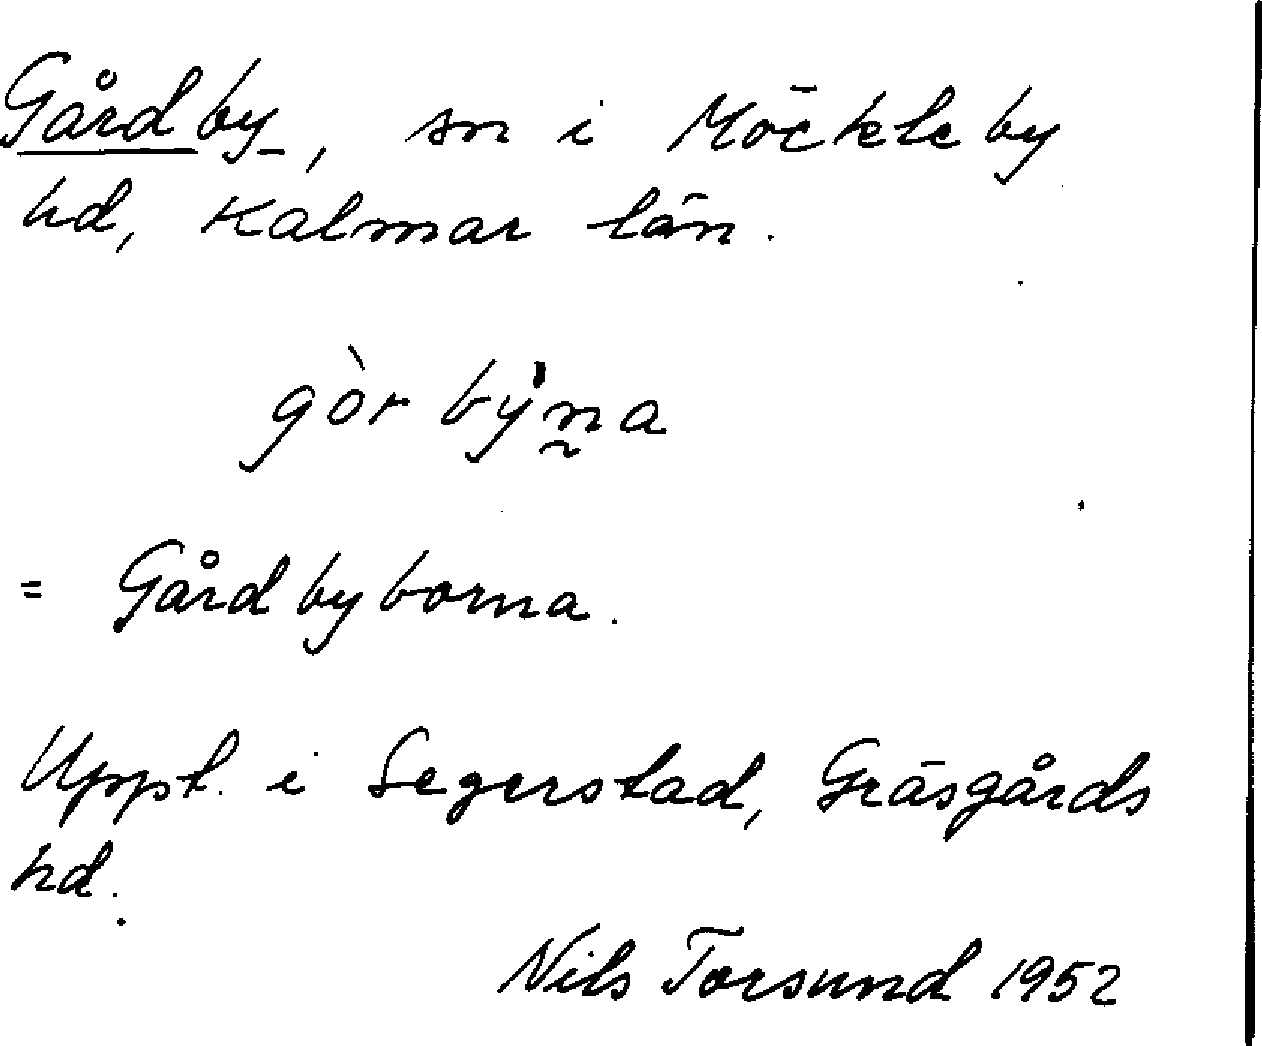 Gårdby, sn i Möckleby
hd, Kalmar län.
gòr by̍n̰a
= Gårdbyborna.
Uppt. i Segerstad, Gräsgårds
hd.
Nils Torsund 1952